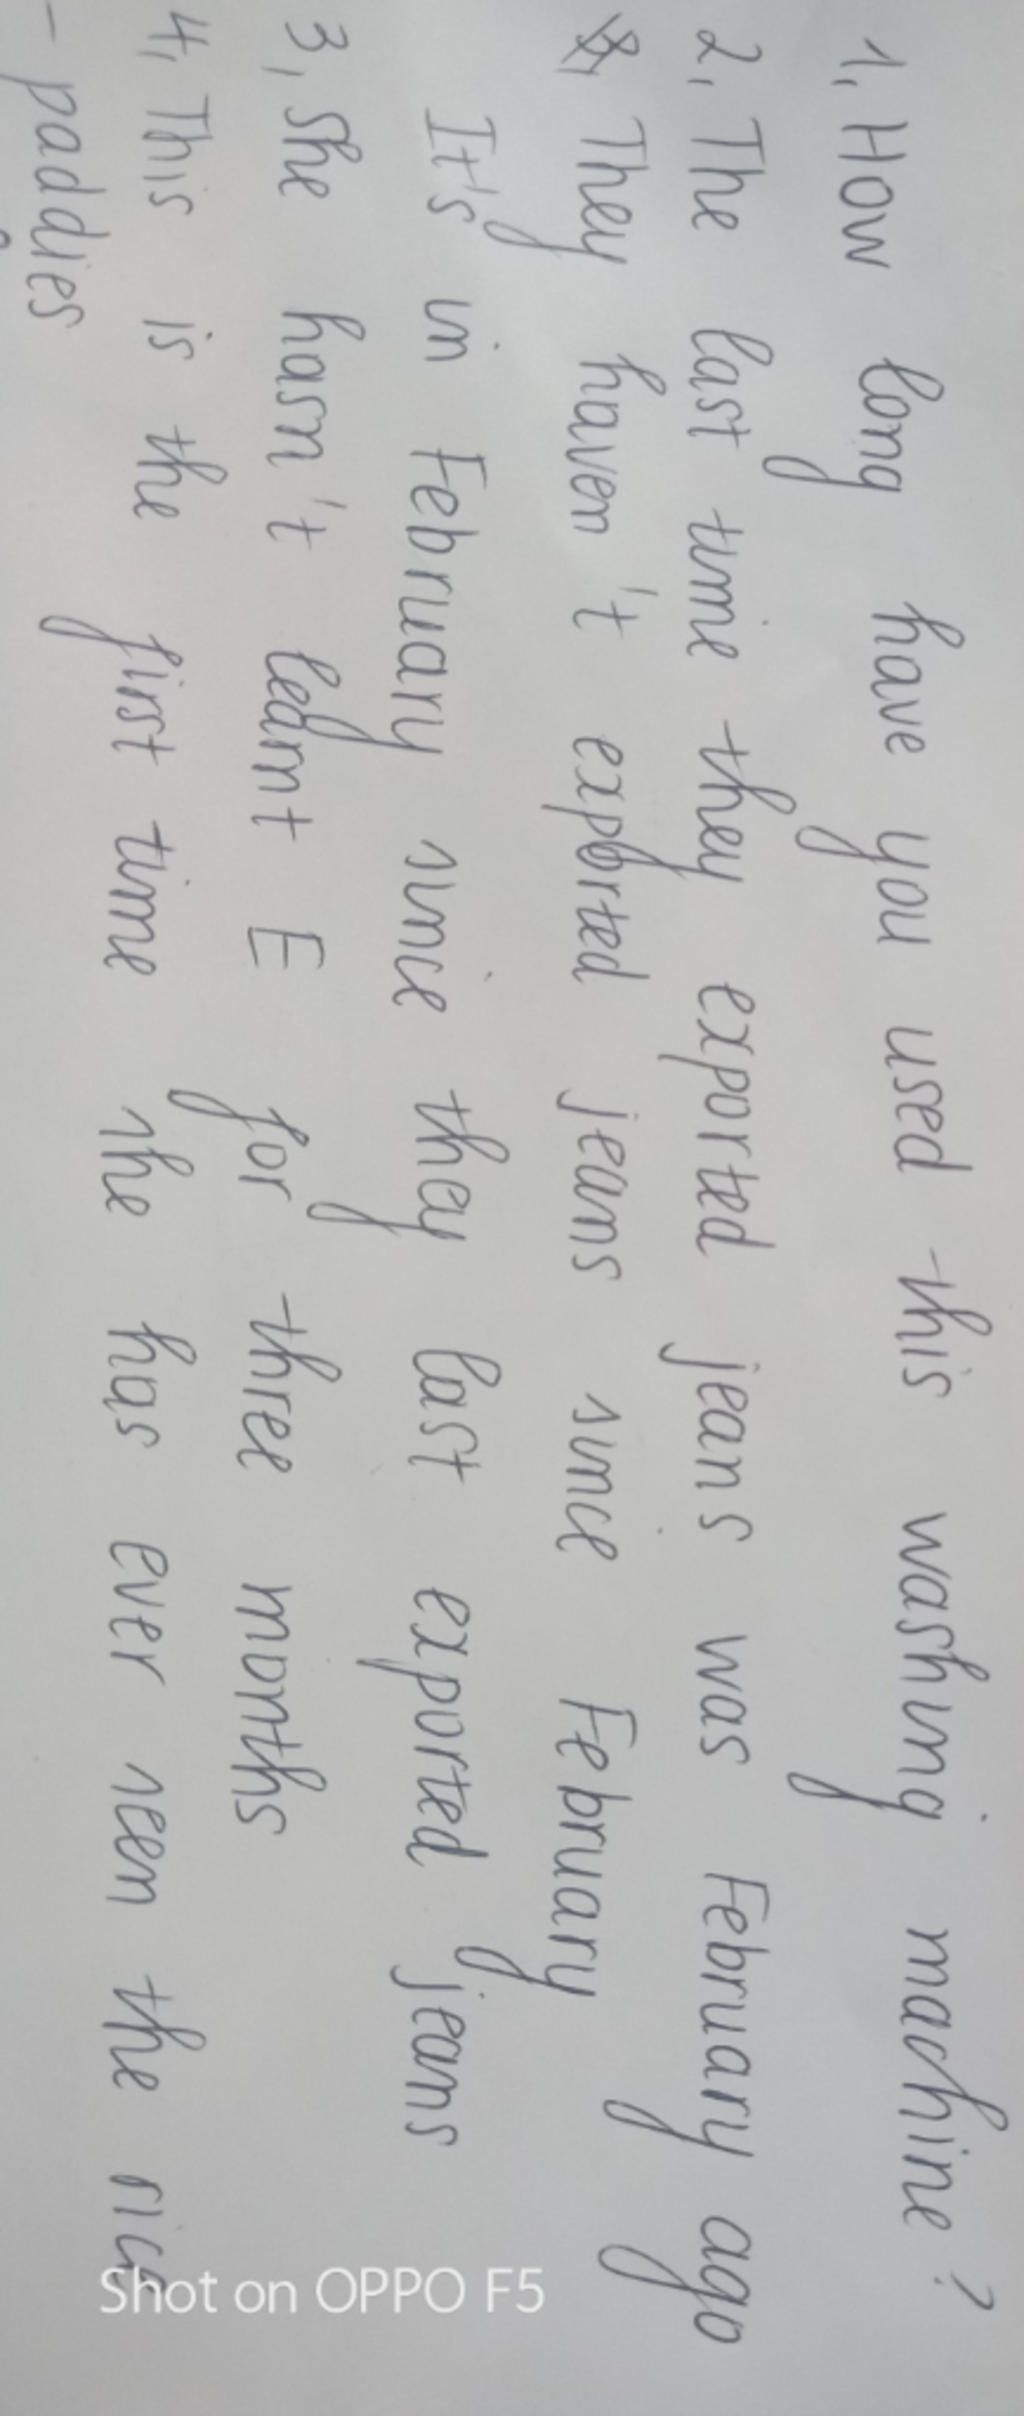 1, How long have you used this washing machine?
2, The last time they exported jeans was February ago
They haven't exported jeans since February
It's in February since they last exported jeans
3, She hasn't learnt E for three months
4, This is the first time she has ever seen the rice
- paddies
Shot on OPPO F5